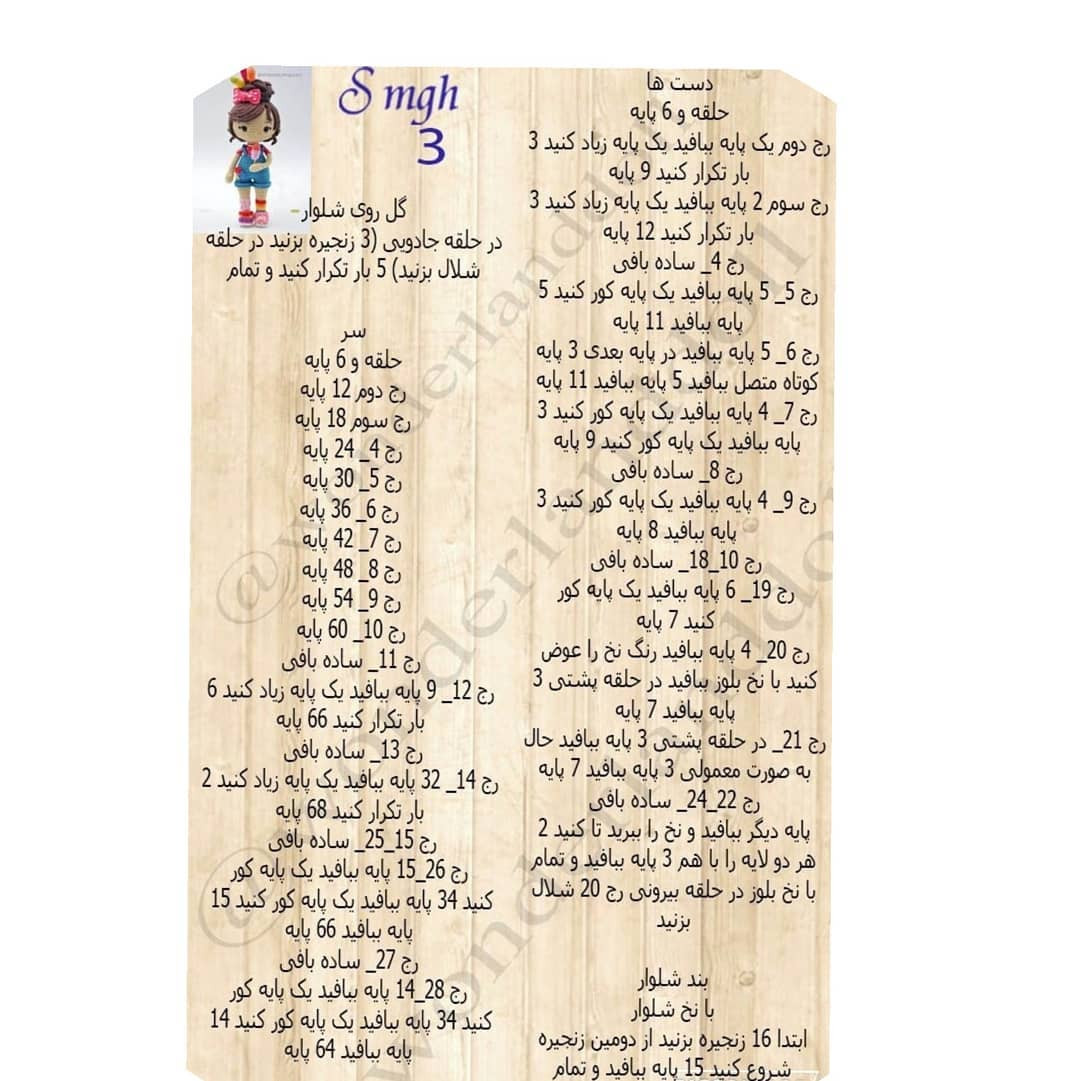 S mgh
3
دست ها
حلقه و 6 پایه
رج دوم یک پایه ببافید یک پایه زیاد کنید 3
بار تکرار کنید 9 پایه
رج سوم 2 پایه ببافید یک پایه زیاد کنید 3
بار تکرار کنید 12 پایه
رج 4_ ساده بافی
رج 5_ 5 پایه ببافید یک پایه کور کنید 5
پایه ببافید 11 پایه
رج 6_ 5 پایه ببافید در پایه بعدی 3 پایه
کوتاه متصل ببافید 5 پایه ببافید 11 پایه
رج 7_ 4 پایه ببافید یک پایه کور کنید 3
پایه ببافید یک پایه کور کنید 9 پایه
رج 8_ ساده بافی
رج 9_ 4 پایه ببافید یک پایه کور کنید 3
پایه ببافید 8 پایه
رج 10_18_ ساده بافی
رج 19_ 6 پایه ببافید یک پایه کور
کنید 7 پایه
رج 20_ 4 پایه ببافید رنگ نخ را عوض
کنید با نخ بلوز ببافید در حلقه پشتی 3
پایه ببافید 7 پایه
رج 21_ در حلقه پشتی 3 پایه ببافید حال
به صورت معمولی 3 پایه ببافید 7 پایه
رج 22_24_ ساده بافی
پایه دیگر ببافید و نخ را ببرید تا کنید 2
هر دو لایه را با هم 3 پایه ببافید و تمام
با نخ بلوز در حلقه بیرونی رج 20 شلال
بزنید
بند شلوار
با نخ شلوار
ابتدا 16 زنجیره بزنید از دومین زنجیره
شروع کنید 15 پایه ببافید و تمام
گل روی شلوار
در حلقه جادویی (3 زنجیره بزنید در حلقه
شلال بزنید) 5 بار تکرار کنید و تمام
سر
حلقه و 6 پایه
رج دوم 12 پایه
رج سوم 18 پایه
رج 4_ 24 پایه
رج 5_ 30 پایه
رج 6_ 36 پایه
رج 7_ 42 پایه
رج 8_ 48 پایه
رج 9_ 54 پایه
رج 10_ 60 پایه
رج 11_ ساده بافی
رج 12_ 9 پایه ببافید یک پایه زیاد کنید 6
بار تکرار کنید 66 پایه
رج 13_ ساده بافی
رج 14_ 32 پایه ببافید یک پایه زیاد کنید 2
بار تکرار کنید 68 پایه
رج 15_25_ ساده بافی
رج 26_15 پایه ببافید یک پایه کور
کنید 34 پایه ببافید یک پایه کور کنید 15
پایه ببافید 66 پایه
رج 27_ ساده بافی
رج 28_14 پایه ببافید یک پایه کور
کنید 34 پایه ببافید یک پایه کور کنید 14
پایه ببافید 64 پایه
@wonderlanddoll
@wonderlanddoll